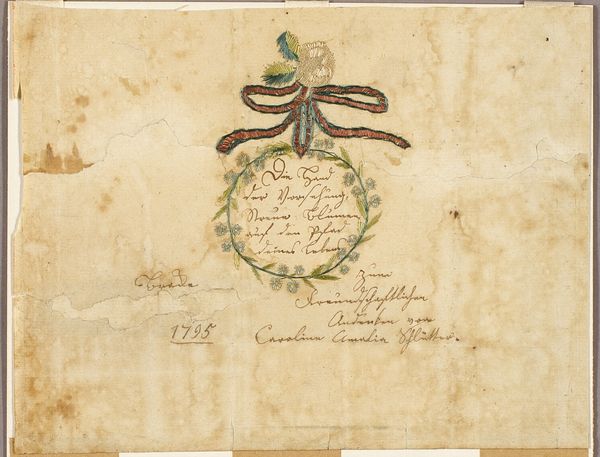 Die Hand
der Vorsehung,
Streue Blumen
auf den Pfad
deines Lebens
Zum
Freundschaftlichen
Andenken von
Carolina Amalia Schlüter.
1795